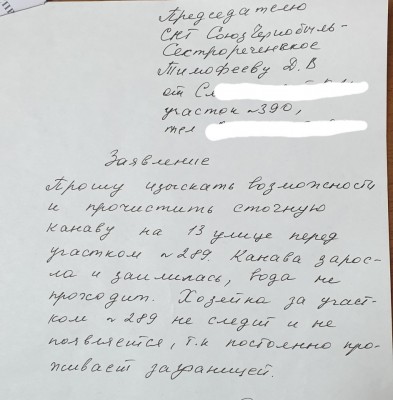 Председателю
СНТ СоюзЧернобыль-
Сестрорецкое
Тимофееву Д.В
от Сл
участок №390,
тел
Заявление
Прошу изыскать возможности
и прочистить сточную
канаву на 13 улице перед
участком №289. Канава зарос-
ла и заилилась, вода не
проходит. Хозяйка за участ-
ком №289 не следит и не
появляется, т.к постоянно про-
живает заграницей.